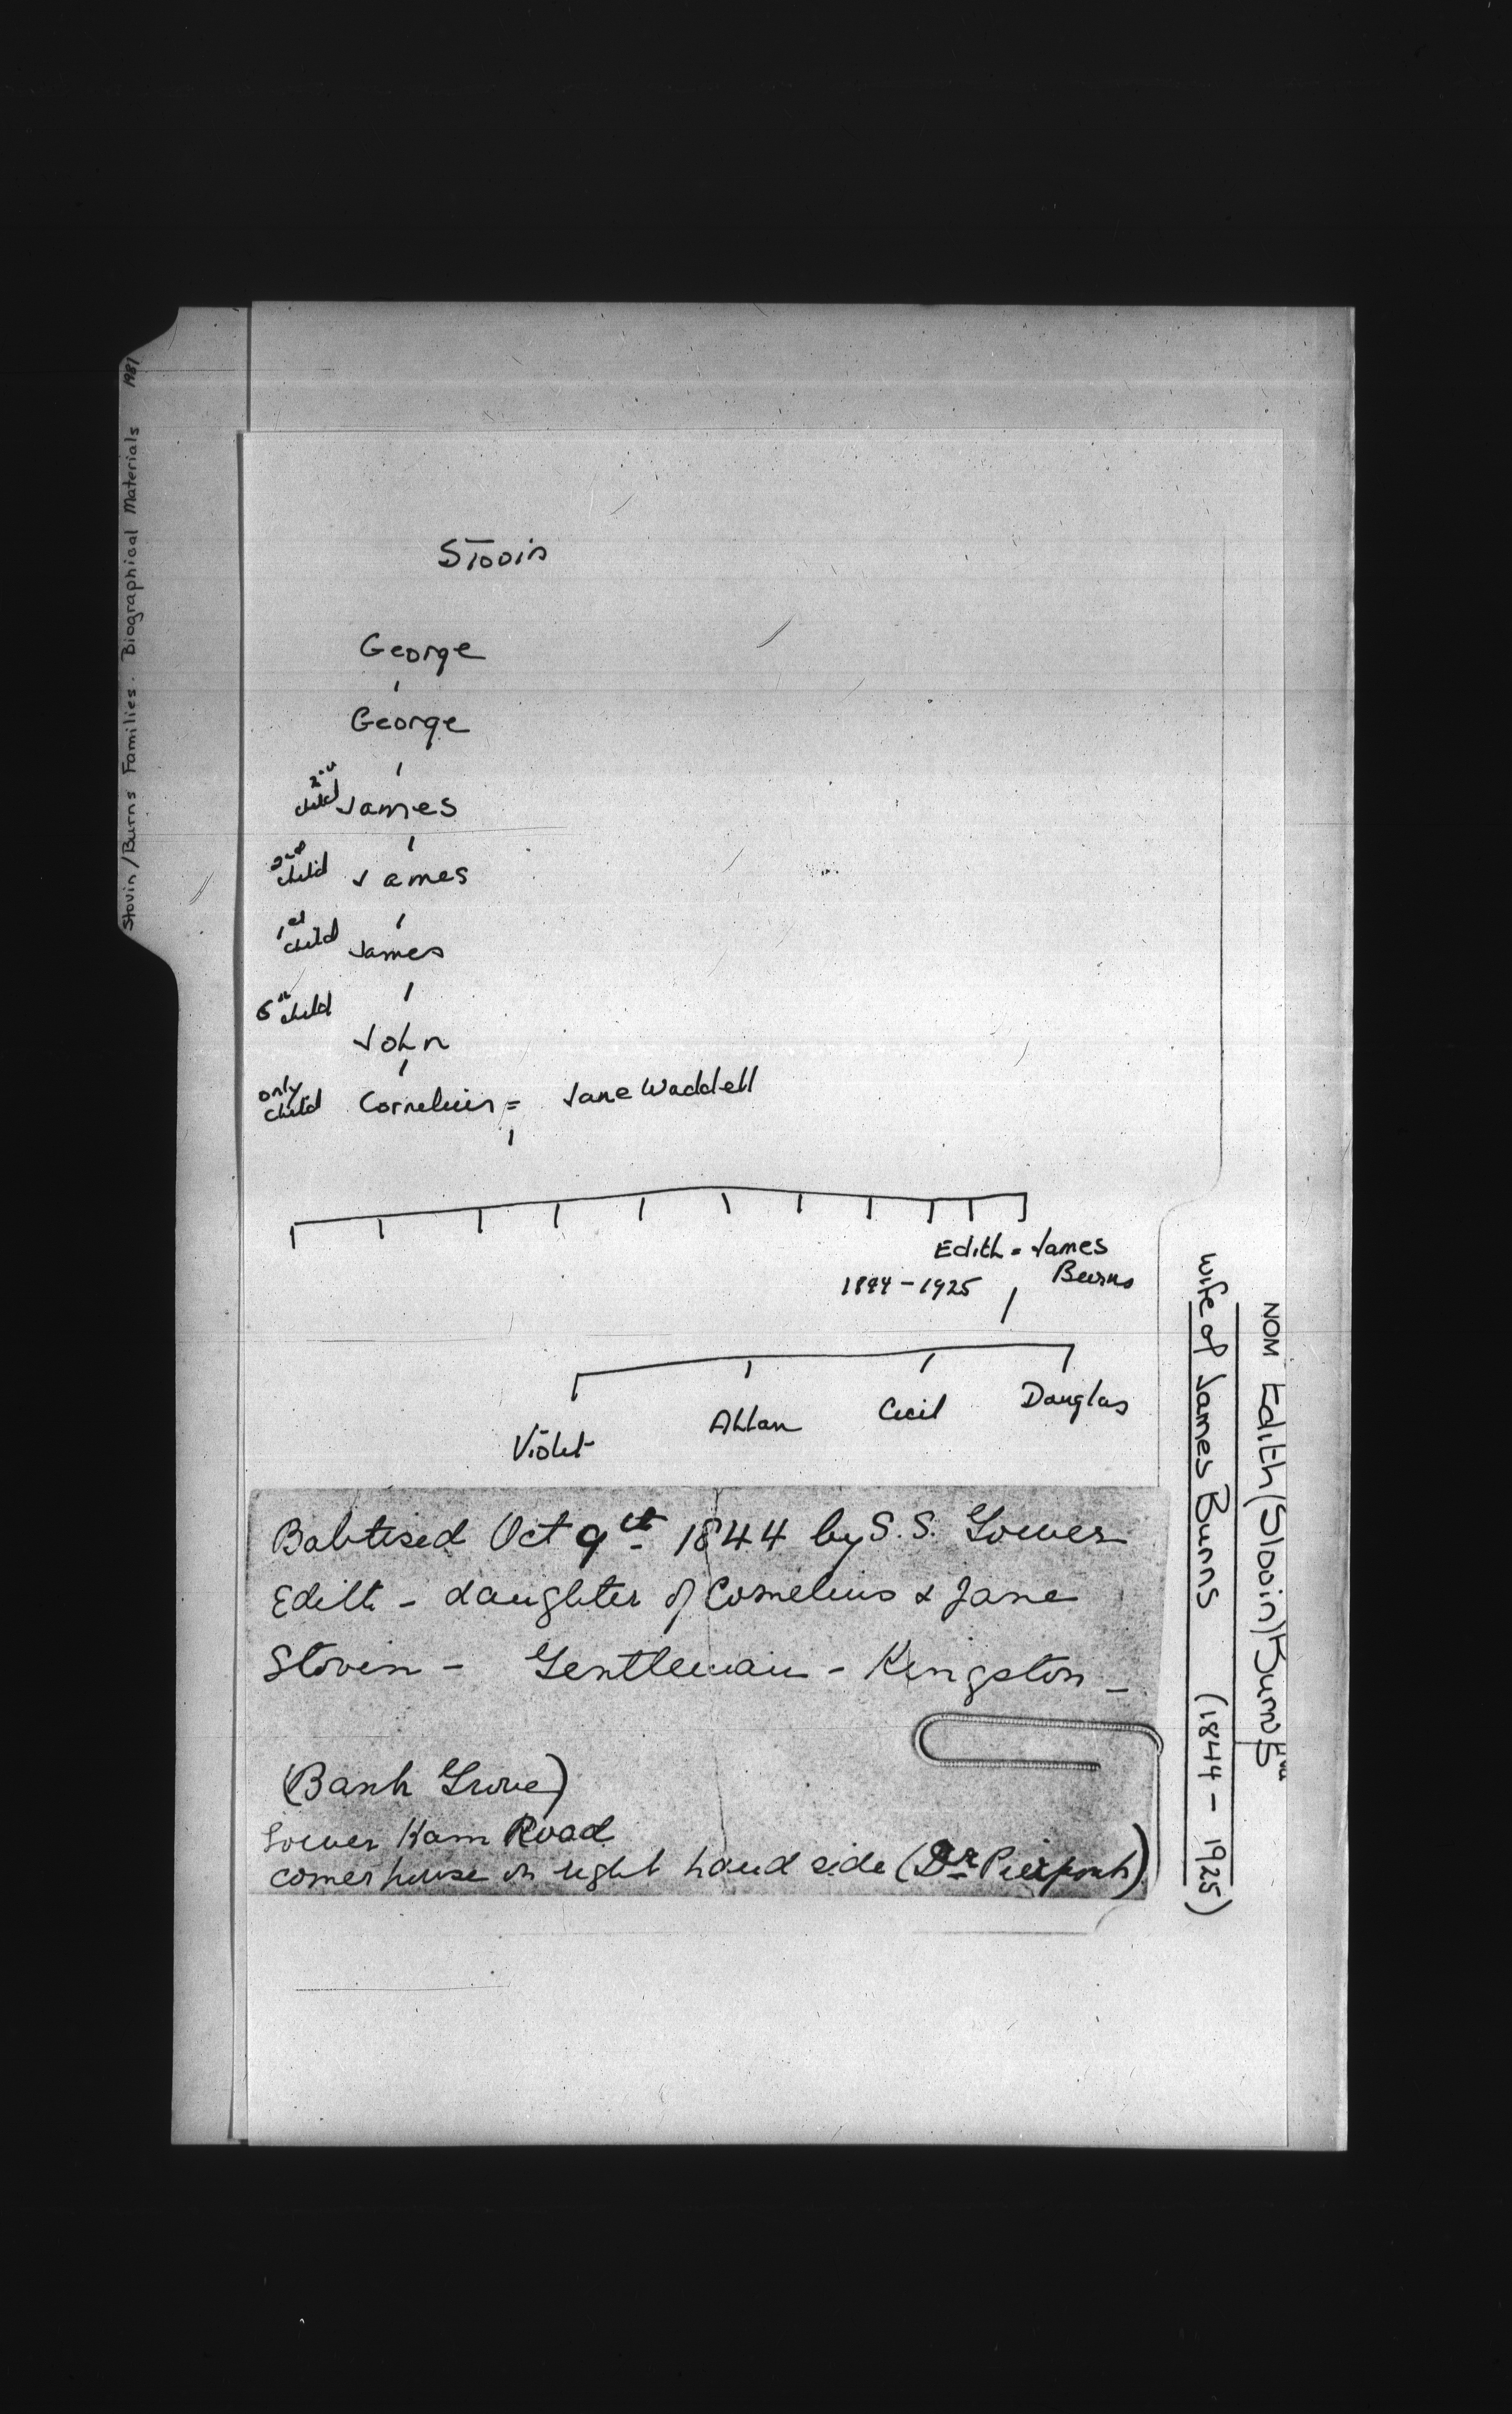 Stovin/Burns Families. Biographical Materials 1981
Stovin
George
George
2nd child James
2nd child James
1st child James
child John
only child Cornelius = Jane Waddell
Edith = James Burns
1844 - 1925
Violet Allan Cecil Douglas
Babtised Oct 9th 1844 by S. S. Gower
Edith - daughter of Cornelius & Jane
Stovin - Gentleman - Kingston -
(Bank Grove)
Lower Ham Road
corner house on right hand side (Dr Pierpont)
NOM Edith (Stovin) Burns
wife of James Burns (1844 - 1925)